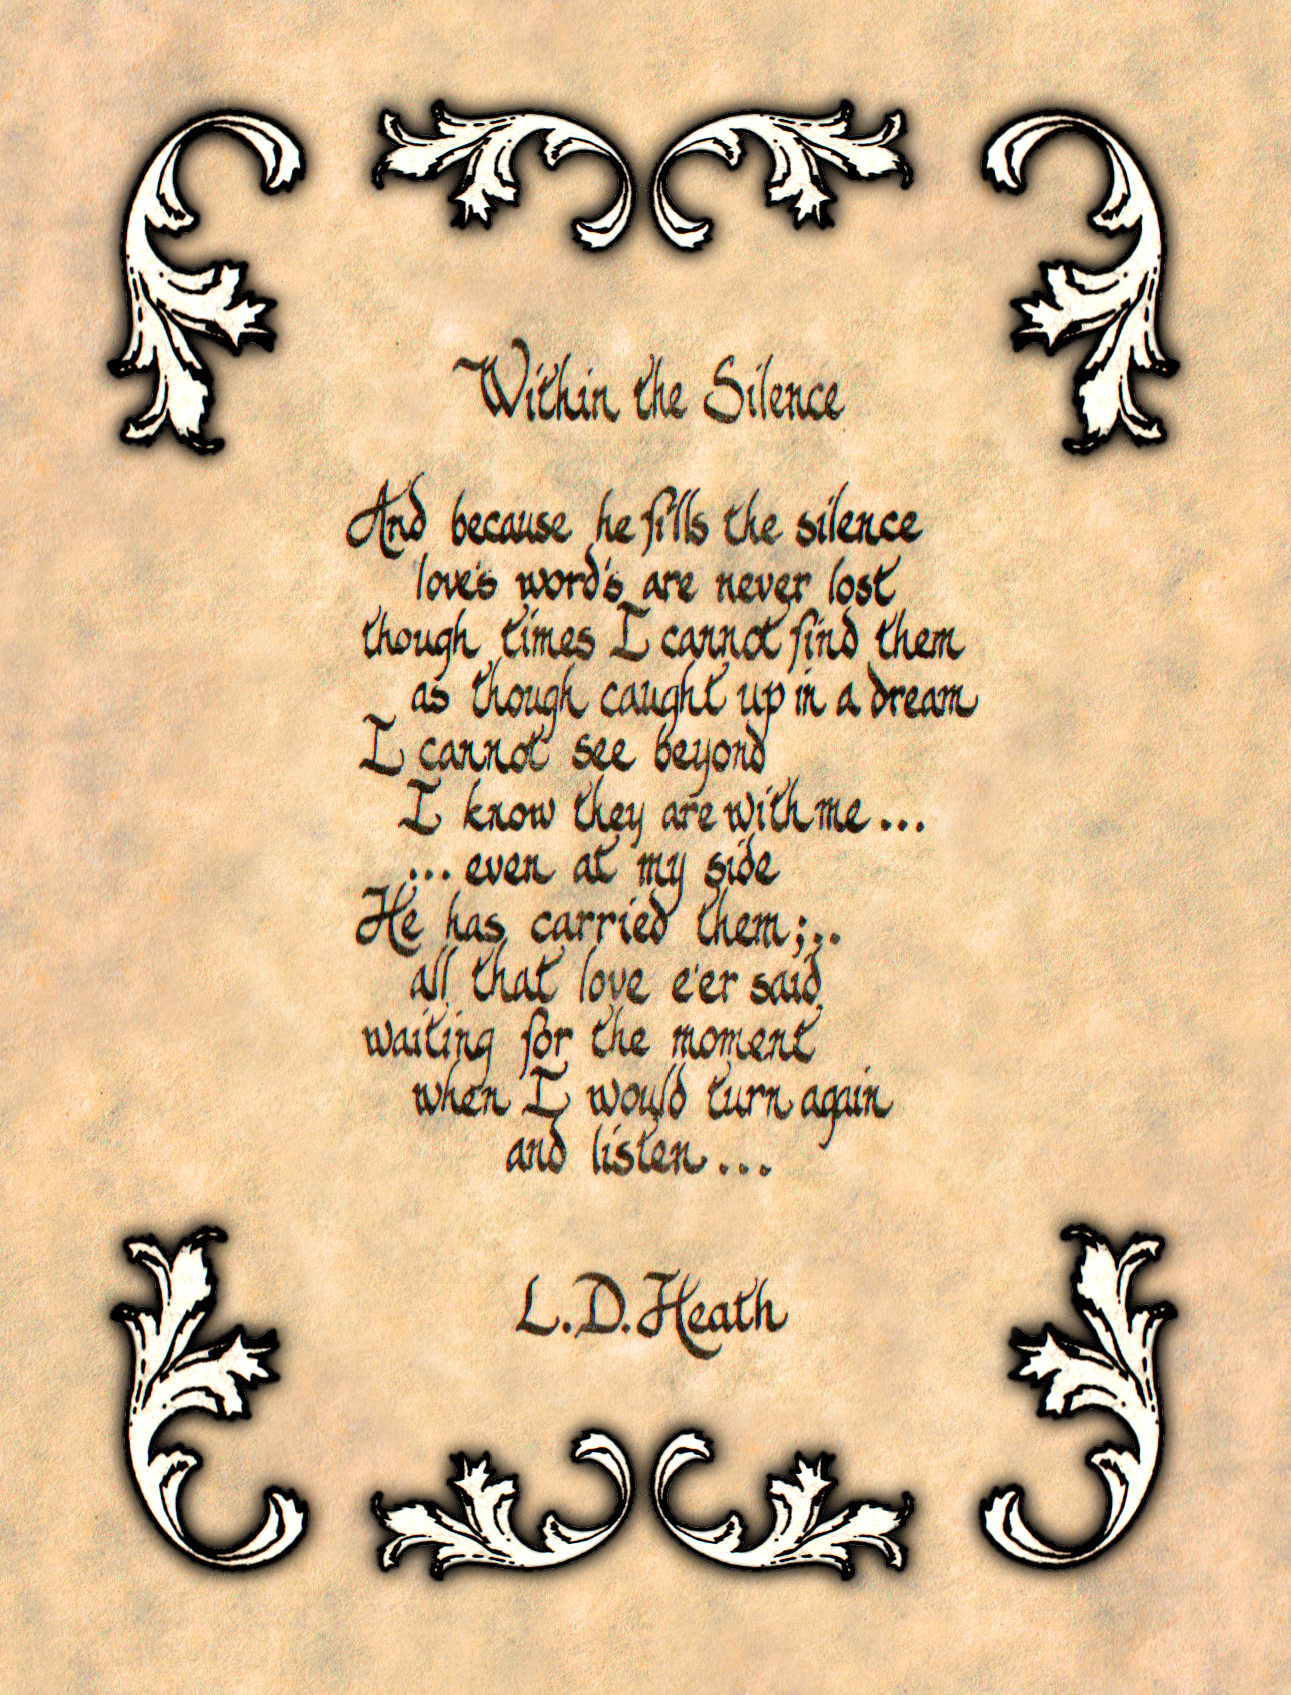 Within the Silence
And because he fills the silence
love's word's are never lost
though times I cannot find them
as though caught up in a dream
I cannot see beyond
I know they are with me...
...even at my side
He has carried them;..
all that love e'er said
waiting for the moment
when I would turn again
and listen...
L.D. Heath